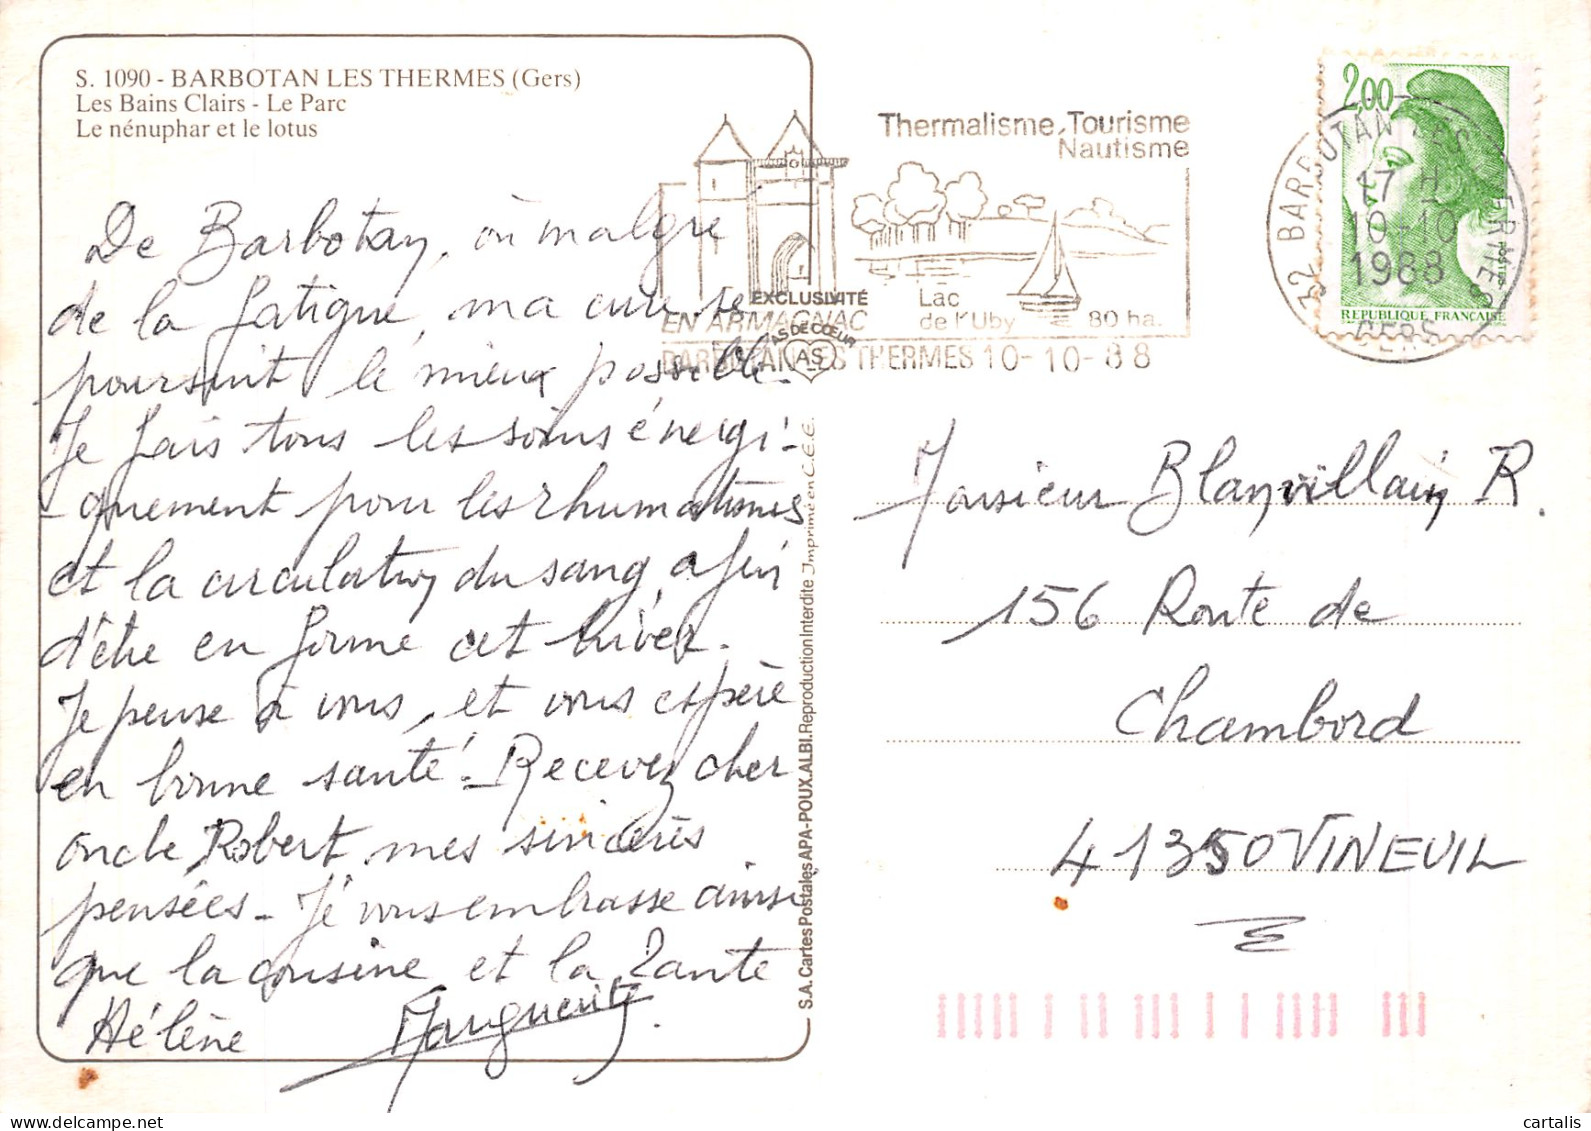 S. 1090 - BARBOTAN LES THERMES (Gers)
Les Bains Clairs - Le Parc
Le nénuphar et le lotus
De Barbotan, où malgré
de la fatigue, ma cure se
poursuit le mieux possible.
Je fais tous les soins énergi-
-quement pour les rhumatismes
et la circulation du sang, afin
d'être en forme cet hiver.
Je pense à vous, et vous espère
en bonne santé. - Recevez cher
oncle Robert mes sincères
pensées - Je vous embrasse ainsi
que la cousine et la Tante
Hélène
Marguerite.
Thermalisme, Tourisme
Nautisme
Lac
de l'Uby 80 ha.
EN ARMAGNAC
BARBOTAN LES THERMES 10-10-88
EXCLUSIVITÉ
AS DE CŒUR
AS
S.A. Cartes Postales APA-POUX. ALBI. Reproduction Interdite Imprimé en C.E.E.
2,00
POSTES
REPUBLIQUE FRANÇAISE
32 BARBOTAN LES THERMES
17 H
10-10
1988
GERS
Monsieur Blanvillain R.
156 Route de
Chambord
41350 VINEUIL
cartalis
delcampe.net